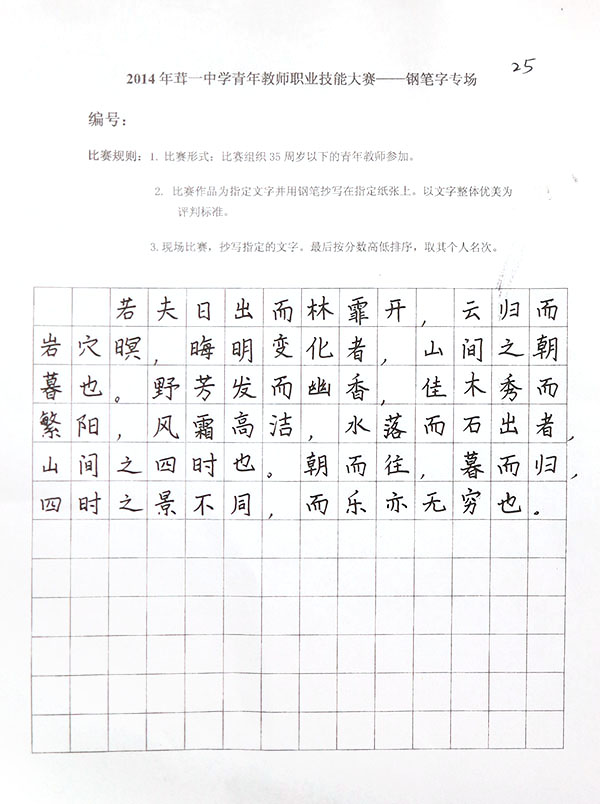 25
2014 年茸一中学青年教师职业技能大赛——钢笔字专场
编号：
比赛规则：1. 比赛形式：比赛组织 35 周岁以下的青年教师参加。
2. 比赛作品为指定文字并用钢笔抄写在指定纸张上。以文字整体优美为
评判标准。
3.现场比赛，抄写指定的文字。最后按分数高低排序，取其个人名次。
若夫日出而林霏开，云归而
岩穴暝，晦明变化者，山间之朝
暮也。野芳发而幽香，佳木秀而
繁阳，风霜高洁，水落而石出者，
山间之四时也。朝而往，暮而归，
四时之景不同，而乐亦无穷也。